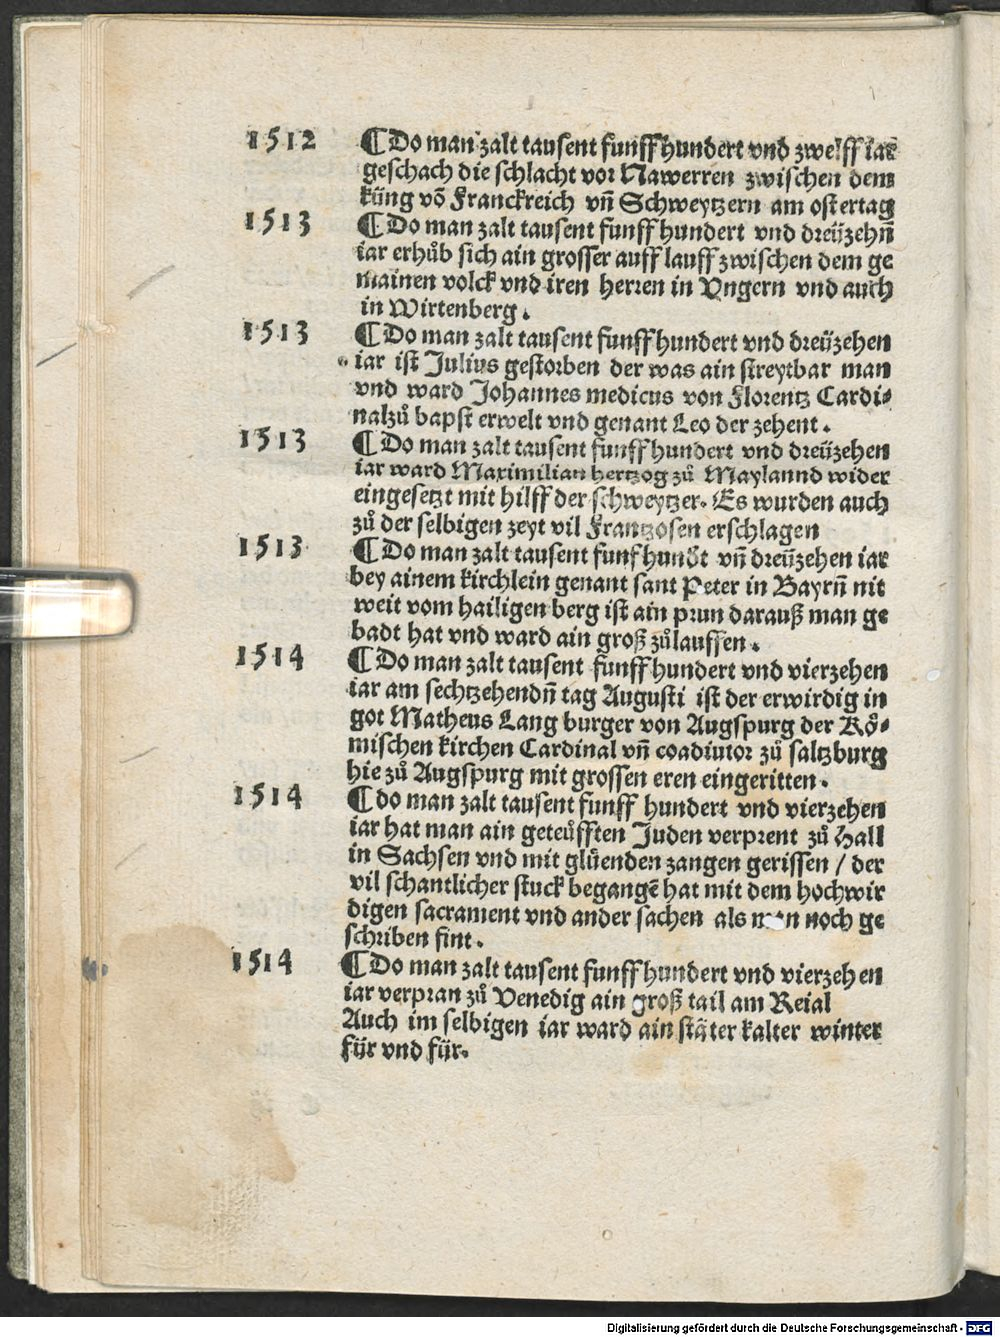 1512 ¶Do man zalt tausent funff hundert vnd zwelff iar
geschach die schlacht vor Nawerren zwischen dem
küng võ Franckreich vñ Schweytzern am ostertag
1513 ¶Do man zalt tausent funff hundert vnd dreÿzehñ
iar erhůb sich ain grosser auff lauff zwischen dem ge
mainen volck vnd iren herren in Vngern vnd auch
in Wirtenberg.
1513 ¶Do man zalt tausent funff hundert vnd dreÿzehen
iar ist Julius gestorben der was ain streytbar man
vnd ward Johannes medicus von Florentz Cardi⸗
nalzů bapst erwelt vnd genant Leo der zehent.
1513 ¶Do man zalt tausent funff hundert vnd dreÿzehen
iar ward Maximilian hertzog zů Maylannd wider
eingesetzt mit hilff der schweytzer. Es wurden auch
zů der selbigen zeyt vil Frantzosen erschlagen
1513 ¶Do man zalt tausent funf hundt vñ dreÿzehen iar
bey ainem kirchlein genant sant Peter in Bayrñ nit
weit vom hailigen berg ist ain prun darauß man ge
badt hat vnd ward ain groß zůlauffen.
1514 ¶Do man zalt tausent funff hundert vnd vierzehen
iar am sechtzehendñ tag Augusti ist der erwirdig in
got Matheus Lang burger von Augspurg der Rö⸗
mischen kirchen Cardinal vñ coadiutor zů saltzburg
hie zů Augspurg mit grossen eren eingeritten.
1514 ¶do man zalt tausent funff hundert vnd vierzehen
iar hat man ain geteüfften Juden verprent zů Hall
in Sachsen vnd mit glüenden zangen gerissen / der
vil schantlicher stuck begangẽ hat mit dem hochwir
digen sacrament vnd ander sachen als man noch ge
schriben fint.
1514 ¶Do man zalt tausent funff hundert vnd vierzehen
iar verpran zů Venedig ain groß tail am Reial
Auch im selbigen iar ward ain stäter kalter winter
für vnd für.
Digitalisierung gefördert durch die Deutsche Forschungsgemeinschaft - DFG